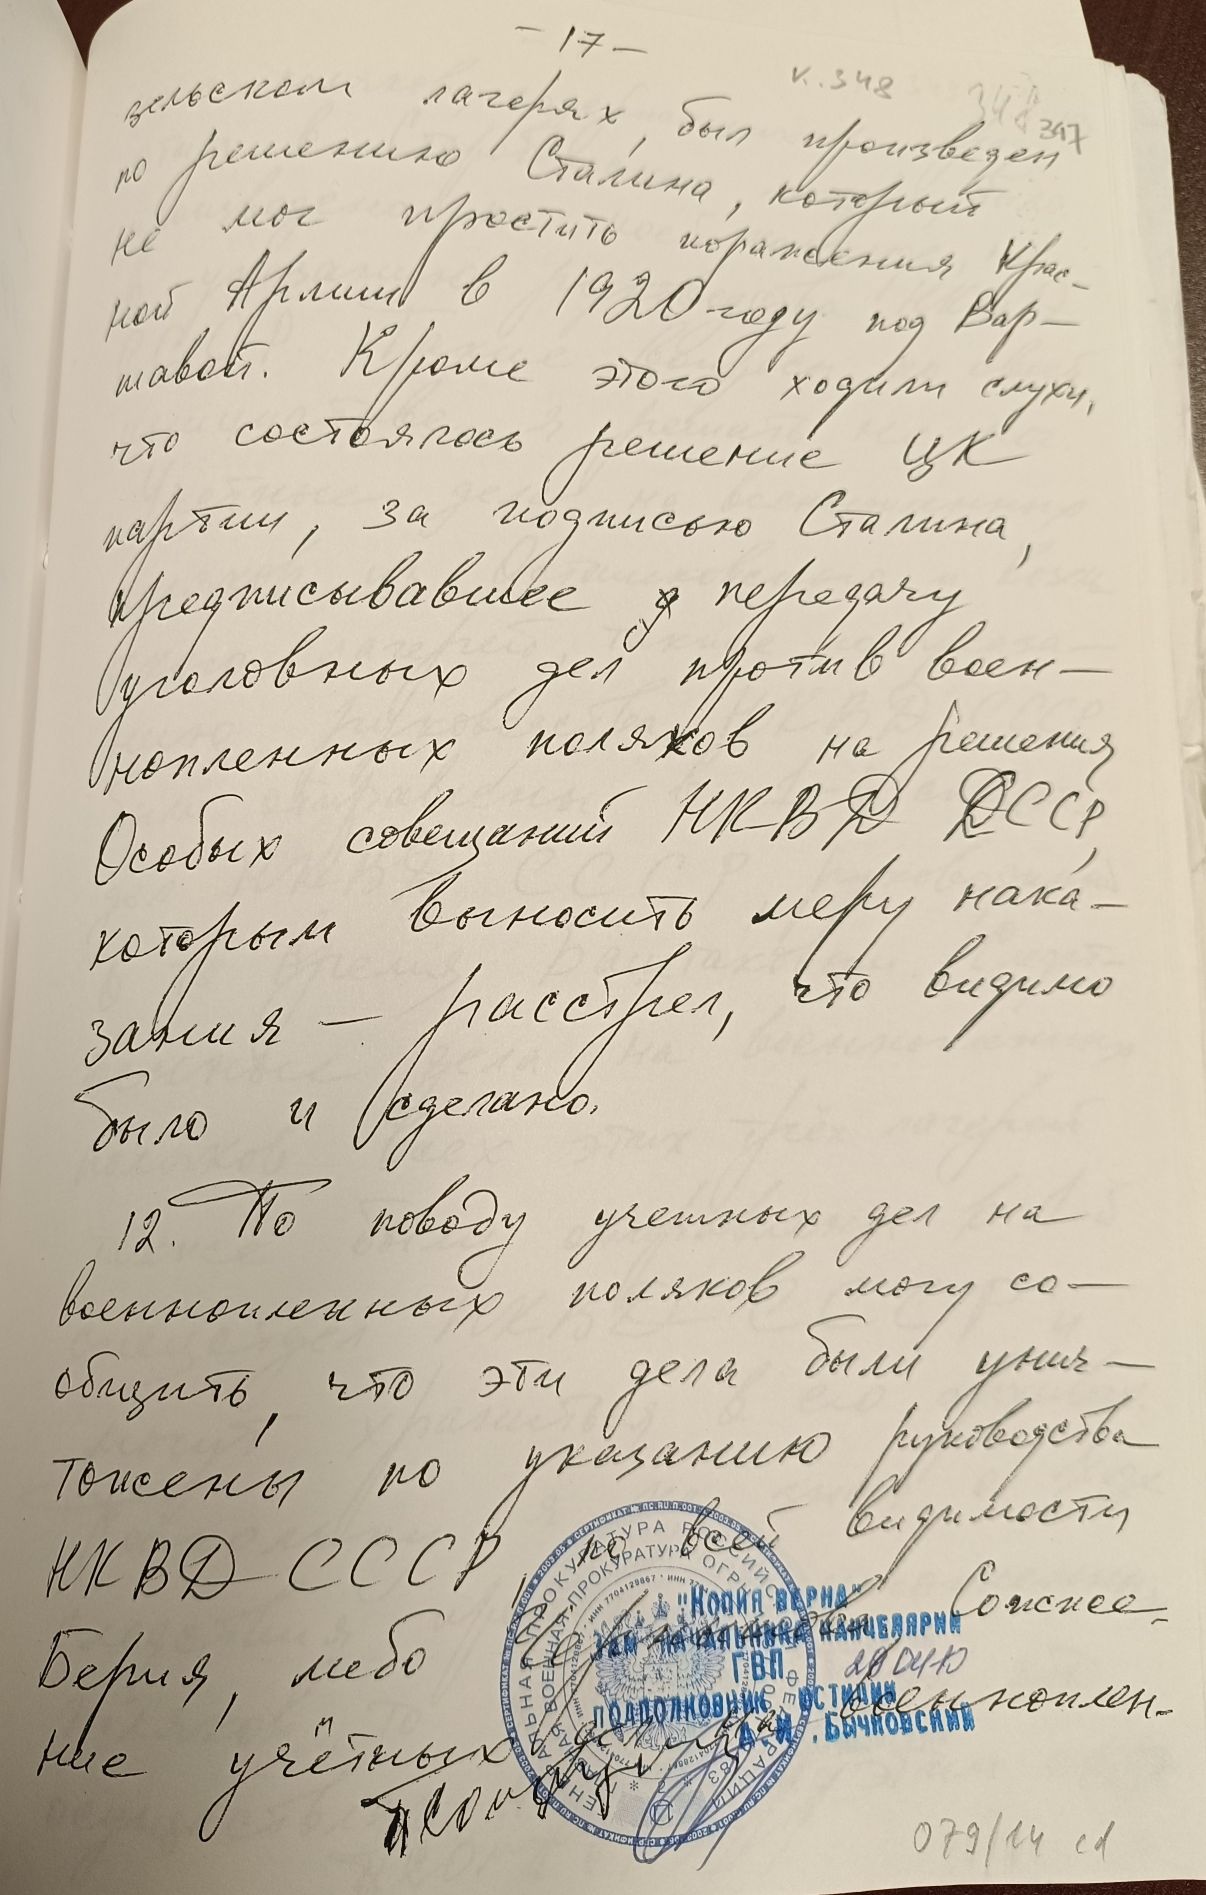 - 17 -
к. 348
348 347
зельском лагерях, был произведен
по решению Сталина, который
не мог простить поражения Крас-
ной Армии в 1920 году под Вар-
шавой. Кроме этого ходили слухи,
что состоялось решение ЦК
партии, за подписью Сталина,
предписывавшее передачу
уголовных дел против воен-
нопленных поляков на решения
Особых совещаний НКВД СССР,
которым выносить меру нака-
зания - расстрел, что видимо
было и сделано.
12. По поводу учетных дел на
военнопленных поляков могу со-
общить, что эти дела были унич-
тожены по указанию руководства
НКВД СССР, по всей видимости
Берия, либо Сожже-
ние учётных дел на военноплен-
"КОПИЯ ВЕРНА"
ЗАМ НАЧАЛЬНИКА КАНЦЕЛЯРИИ
ГВП
ПОДПОЛКОВНИК ЮСТИЦИИ
БЫЧКОВСКИЙ
079/14 cd